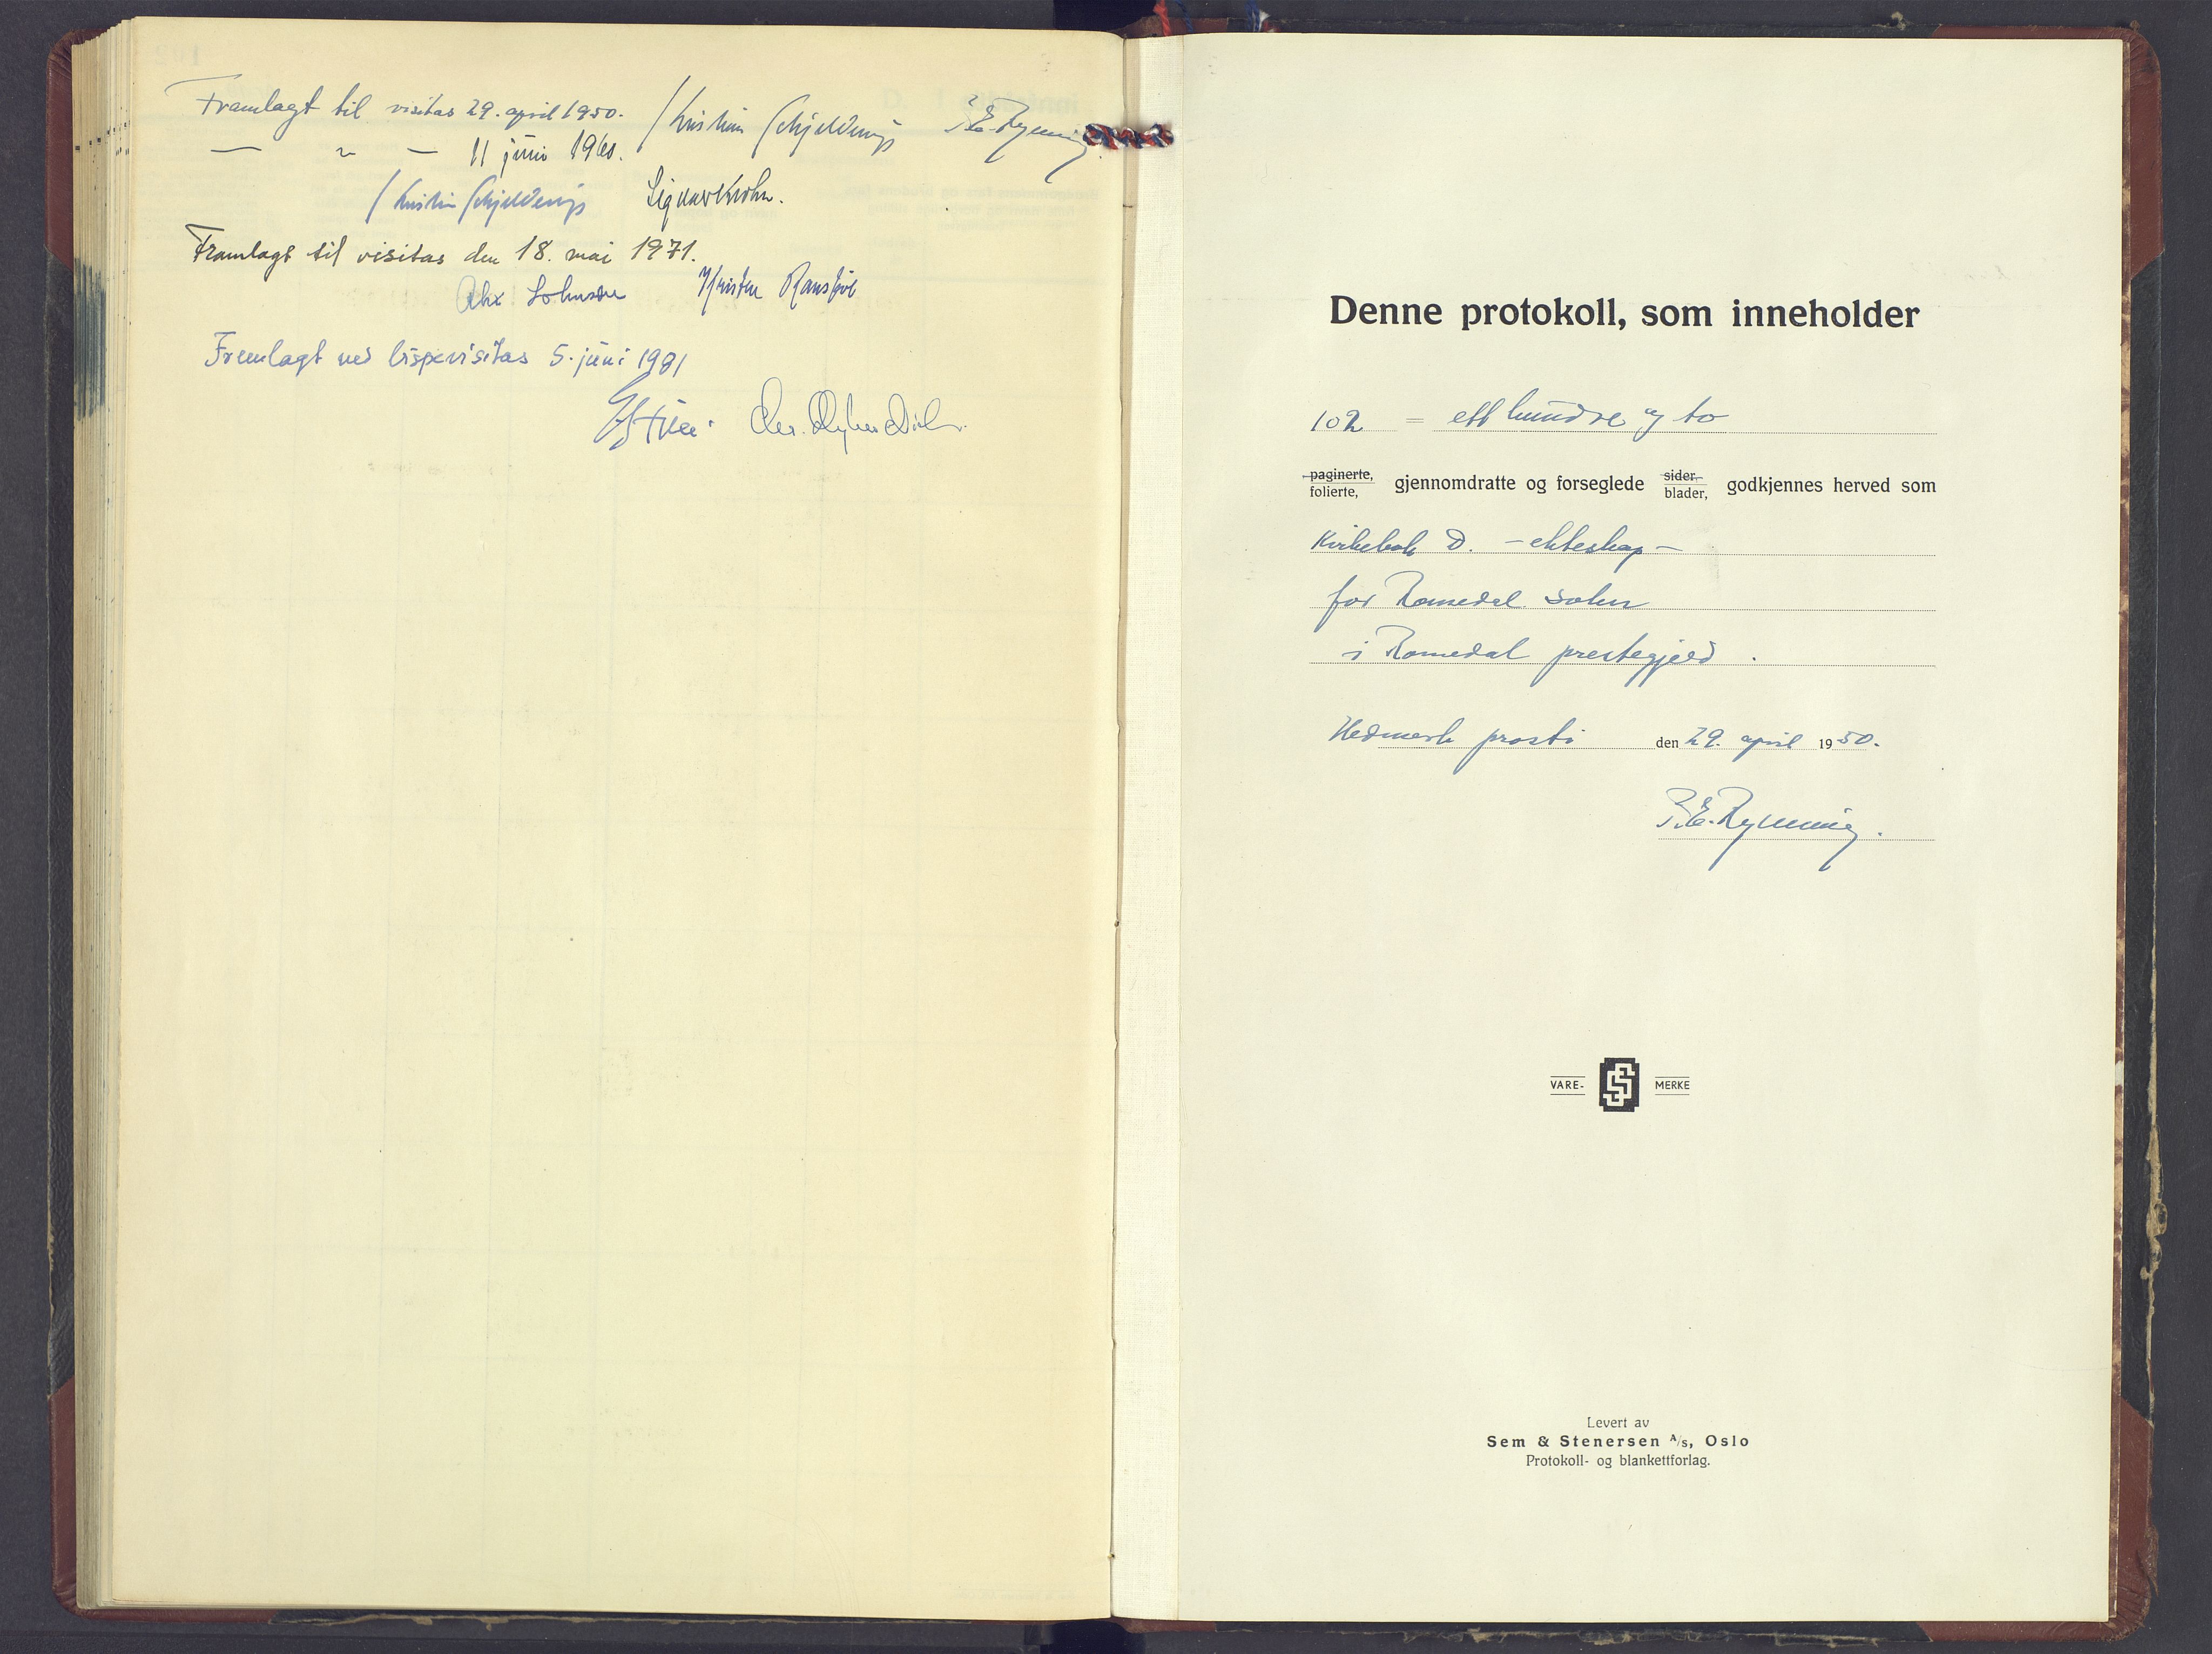 Framlagt til visitas 29. april 1950. / Kristian Schjelderup P.E. Rynning.
— " — 11 juni 1960.
/ Kristian Schjelderup Sigvart Krohn.
Framlagt til visitas den 18. mai 1971.
Alex Johnson Kristen Ransjøl
Fremlagt ved bispevisitas 5. juni 1981
Chr.
Denne protokoll, som inneholder
102 = ett hundre og to
paginerte, folierte, gjennomdratte og forseglede sider blader, godkjennes herved som
Kirkebok D. – ekteskap –
for Romedal sokn
i Romedal prestegjeld.
Hedmark prosti den 29. april 1950.
P.E. Rynning.
VARE- SS MERKE
Levert av
Sem & Stenersen A/s, Oslo
Protokoll- og blankettforlag.